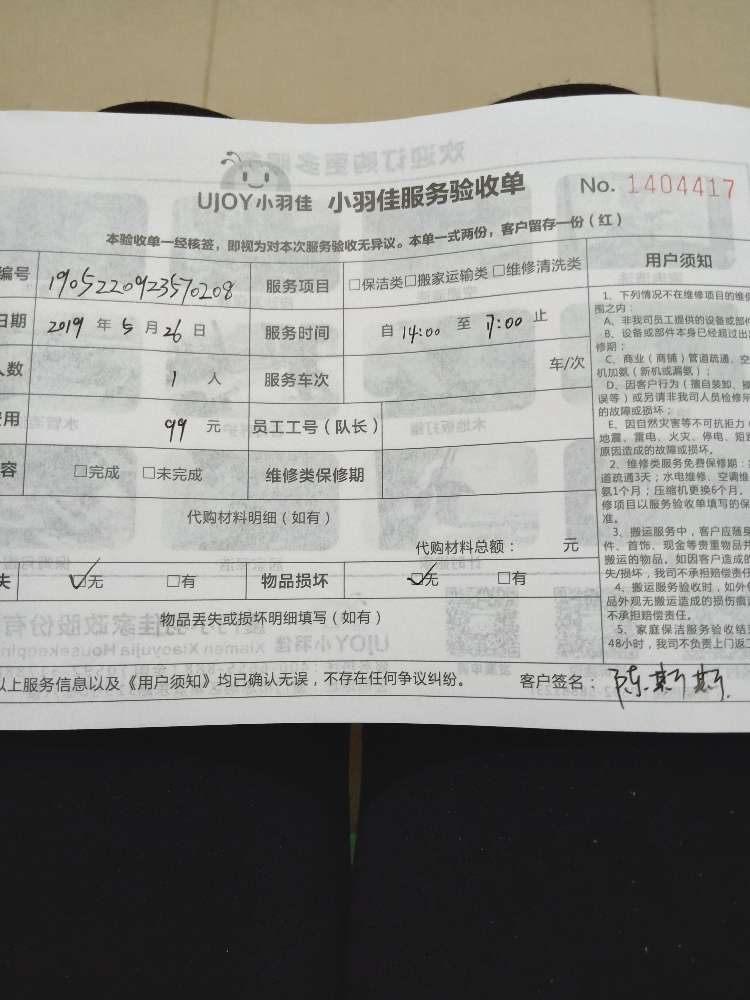 UJOY小羽佳 小羽佳服务验收单 No. 1404417
本验收单一经核签，即视为对本次服务验收无异议。本单一式两份，客户留存一份（红）
编号 1905220923570208 服务项目 □保洁类□搬家运输类□维修清洗类
日期 2019 年 5 月 26 日 服务时间 自 14:00 至 17:00 止
人数 1 人 服务车次 车/次
费用 99 元 员工工号（队长）
容 □完成 □未完成 维修类保修期
代购材料明细（如有）
代购材料总额： 元
失 □无 □有 物品损坏 □无 □有
物品丢失或损坏明细填写（如有）
以上服务信息以及《用户须知》均已确认无误，不存在任何争议纠纷。 客户签名：陈斯斯
用户须知
1、下列情况不在维修项目的维修
围之内：
A、非我司员工提供的设备或部件
B、设备或部件本身已经超过出
修期；
C、商业（商铺）管道疏通、空
机加氨（新机或漏氨）；
D、因客户行为（擅自装卸、操
误等）或另请非我司人员检修所
的故障或损坏；
E、因自然灾害等不可抗拒力（
地震、雷电、火灾、停电、短路
原因造成的故障或损坏。
2、维修类服务免费保修期：
道疏通3天；水电维修、空调维
氨1个月；压缩机更换6个月。
修项目以服务验收单填写的保
准。
3、搬运服务中，客户应随身
件、首饰、现金等贵重物品并
搬运的物品。如因客户造成的
失/损坏，我司不承担赔偿责任
4、搬运服务验收时，如外包
品外观无搬运造成的损伤痕迹
不承担赔偿责任。
5、家庭保洁服务验收结束
48小时，我司不负责上门返工